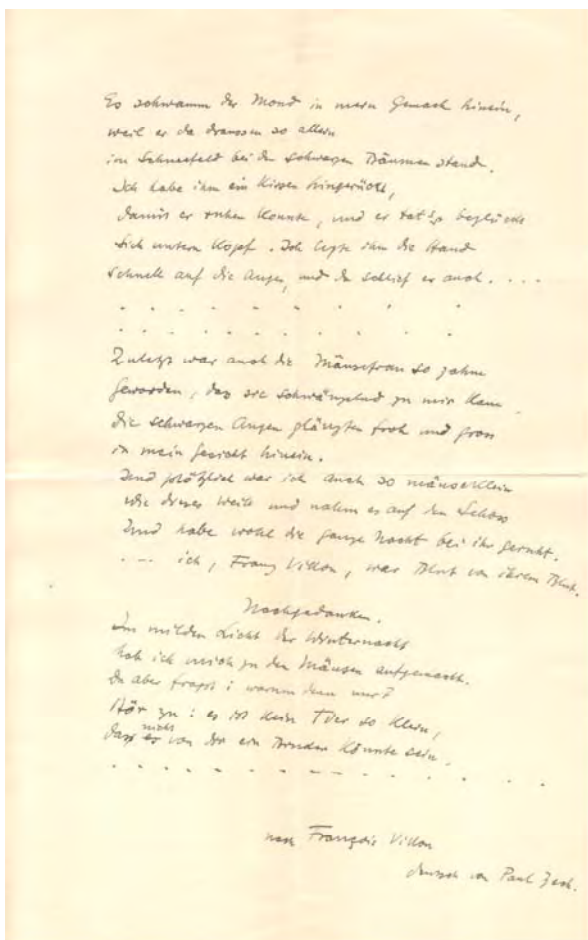 Es schwamm der Mond in mein Gemach hinein,
weil er da draussen so allein
im Schneefeld bei den schwarzen Bäumen stand.
Ich habe ihm ein Kissen hingerückt,
damit er ruhen konnte, und er tat's beglückt
sich untern Kopf. Ich legte ihm die Hand
schnell auf die Augen, und da schlief er auch. . . .
. . . . . . . .
. . . . . . . . . .
Zuletzt war auch die Mäusefrau so zahm
geworden, dass sie schwänzelnd zu mir kam
die schwarzen Augen glänzten froh und gross
in mein Gesicht hinein.
Und plötzlich war ich auch so mäuseklein
wie dieses Weib und nahm es auf den Schoss
Und habe wohl die ganze Nacht bei ihr geruht.
. . . ich, Franz Villon, war Blut von ihrem Blut.
Nachgedanken.
Im milden Licht der Winternacht
hab ich mich zu den Mäusen aufgemacht.
Du aber fragst: warum denn nur?
Hör zu: es ist kein Tier so klein,
das nicht von dir ein Bruder könnte sein.
. . . . . . . . . . . . . .
nach François Villon
deutsch von Paul Zech.